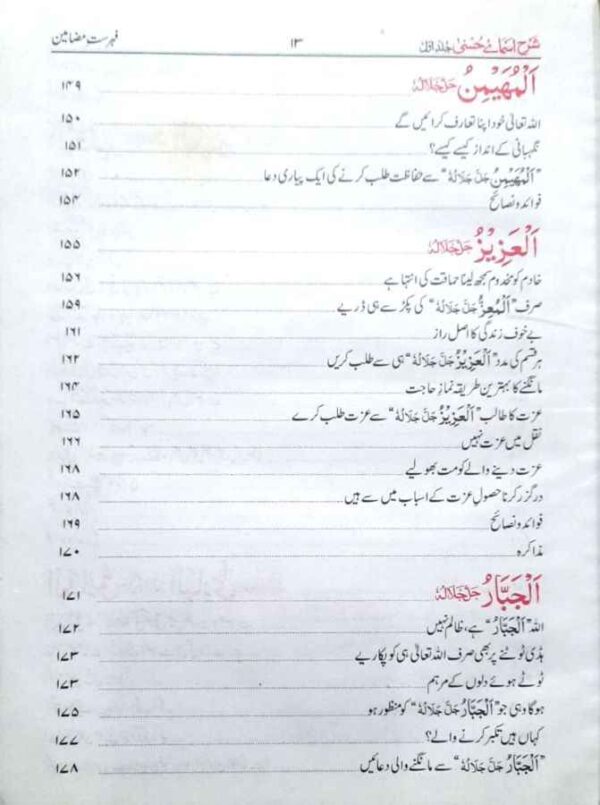 شرح اسمائے حسنیٰ جلد اول ۱۳ فہرست مضامین
اَلْمُهَيْمِنُ جَلَّ جَلَالُهُ ۱۴۹
اللہ تعالیٰ خود اپنا تعارف کرائیں گے ۱۵۰
نگہبانی کے انداز کیسے کیسے؟ ۱۵۱
”اَلْمُهَيْمِنُ جَلَّ جَلَالُهُ“ سے حفاظت طلب کرنے کی ایک پیاری دعا ۱۵۲
فوائد و نصائح ۱۵۴
اَلْعَزِيْزُ جَلَّ جَلَالُهُ ۱۵۵
خادم کو مخدوم سمجھ لینا حماقت کی انتہا ہے ۱۵۶
صرف ”اَلْمُعِزُّ جَلَّ جَلَالُهُ“ کی پکڑ سے ہی ڈریے ۱۵۹
بے خوف زندگی کا اصل راز ۱۶۱
ہر قسم کی مدد ”اَلْعَزِيْزُ جَلَّ جَلَالُهُ“ ہی سے طلب کریں ۱۶۲
مانگنے کا بہترین طریقہ نمازِ حاجت ۱۶۴
عزت کا طالب ”اَلْعَزِيْزُ جَلَّ جَلَالُهُ“ سے عزت طلب کرے ۱۶۵
نقل میں عزت نہیں ۱۶۶
عزت دینے والے کو مت بھولیے ۱۶۸
درگزر کرنا حصولِ عزت کے اسباب میں سے ہیں ۱۶۸
فوائد و نصائح ۱۶۹
مذاکرہ ۱۷۰
اَلْجَبَّارُ جَلَّ جَلَالُهُ ۱۷۱
اللہ ”اَلْجَبَّارُ“ ہے، ظالم نہیں ۱۷۲
ہڈی ٹوٹنے پر بھی صرف اللہ تعالیٰ ہی کو پکاریے ۱۷۳
ٹوٹے ہوئے دلوں کے مرہم ۱۷۳
ہوگا وہی جو ”اَلْجَبَّارُ جَلَّ جَلَالُهُ“ کو منظور ہو ۱۷۵
کہاں ہیں تکبر کرنے والے؟ ۱۷۷
”اَلْجَبَّارُ جَلَّ جَلَالُهُ“ سے مانگنے والی دعائیں ۱۷۸